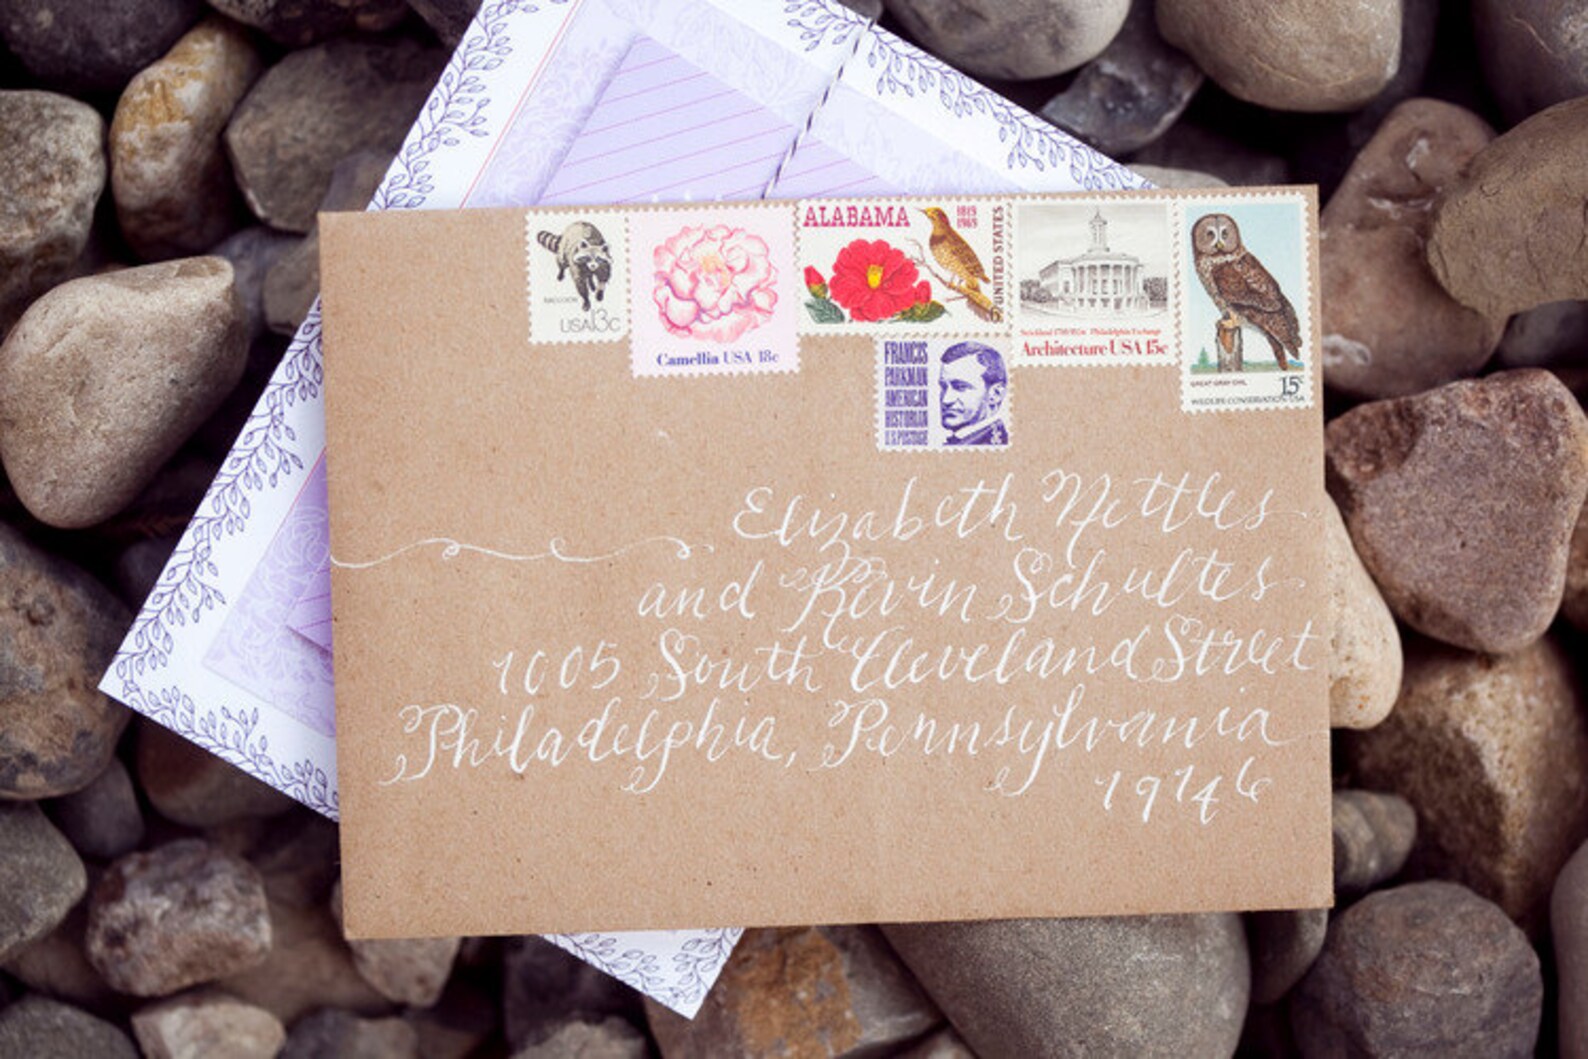 RACCOON
USA13c
Camellia USA 18c
ALABAMA
1819
1969
UNITED STATES
6c
Architecture USA 15c
GREAT GRAY OWL
15c
WILDLIFE CONSERVATION USA
FRANCIS
PARKMAN
AMERICAN
HISTORIAN
U.S. POSTAGE
Elizabeth Nettles
and Kevin Schultes
1005 South Cleveland Street
Philadelphia, Pennsylvania
19146